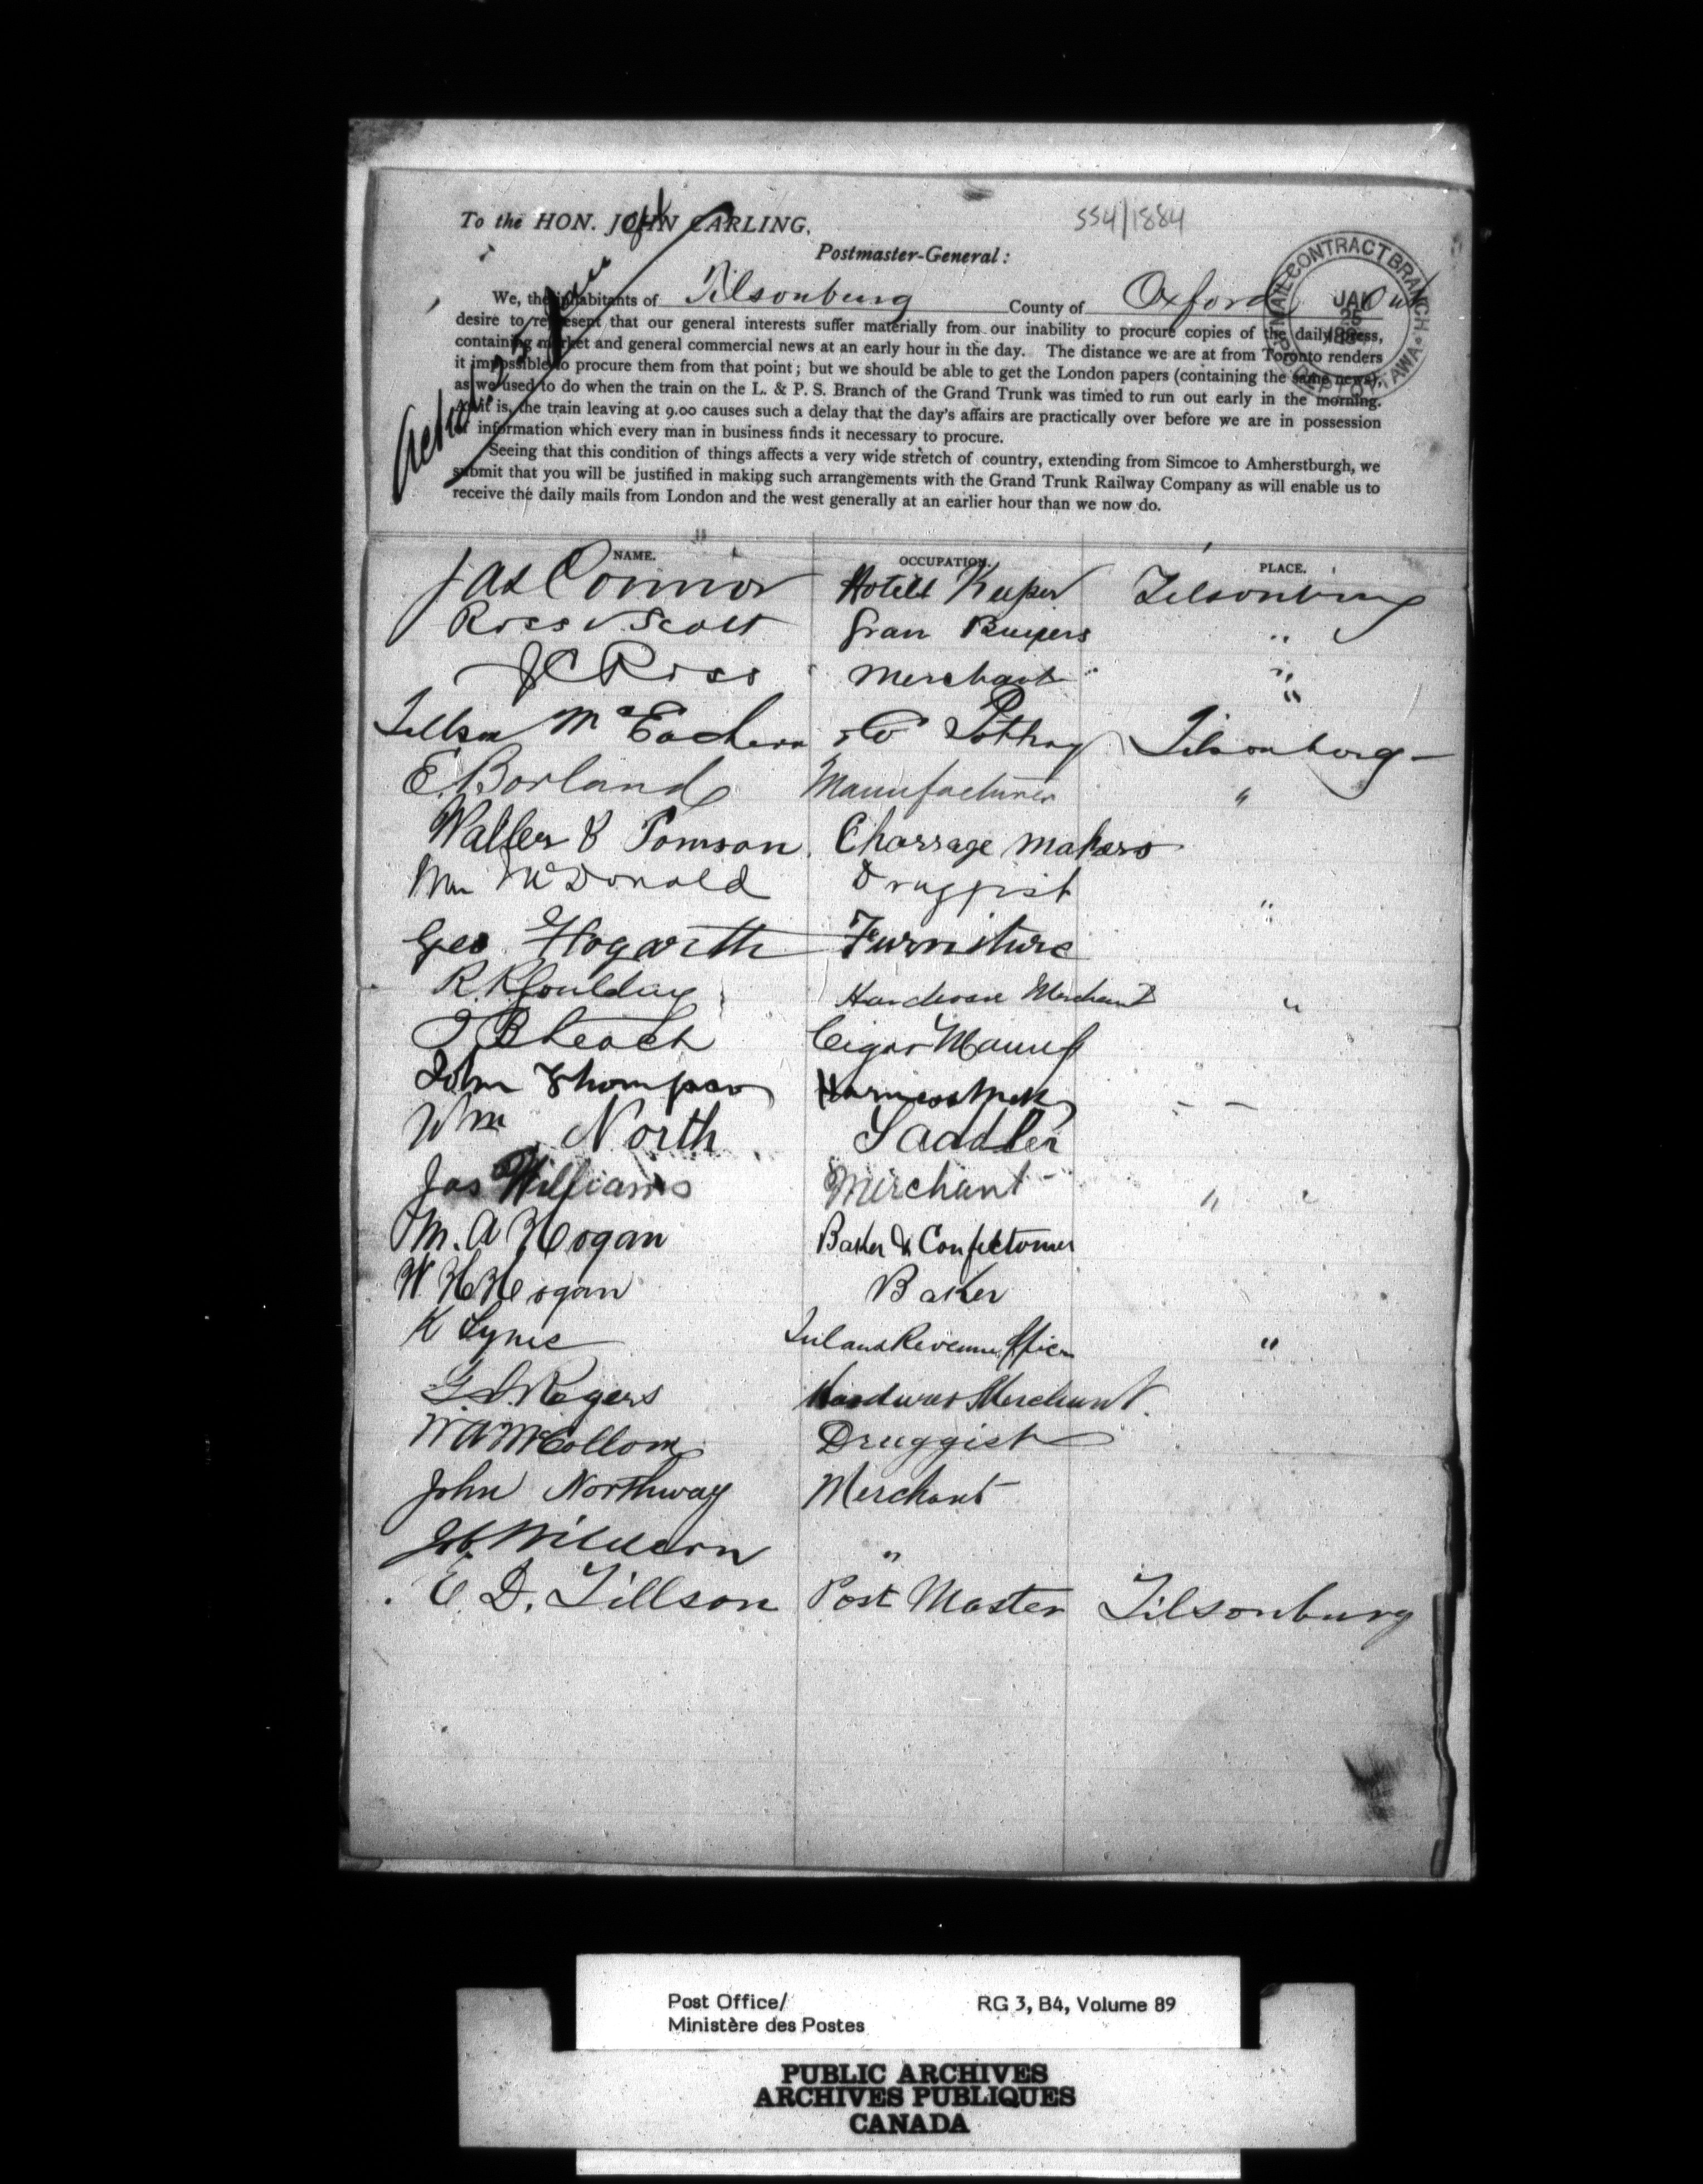 To the HON. JOHN CARLING,
554/1884
Postmaster-General:
MAIL CONTRACT BRANCH
JAN
25
P.O. DEPT OTTAWA
We, the inhabitants of Tilsonburg County of Oxford Ont
desire to represent that our general interests suffer materially from our inability to procure copies of the daily press,
containing market and general commercial news at an early hour in the day. The distance we are at from Toronto renders
it impossible to procure them from that point; but we should be able to get the London papers (containing the same news),
as we used to do when the train on the L. & P. S. Branch of the Grand Trunk was timed to run out early in the morning.
As it is, the train leaving at 9.00 causes such a delay that the day's affairs are practically over before we are in possession
of information which every man in business finds it necessary to procure.
Seeing that this condition of things affects a very wide stretch of country, extending from Simcoe to Amherstburgh, we
submit that you will be justified in making such arrangements with the Grand Trunk Railway Company as will enable us to
receive the daily mails from London and the west generally at an earlier hour than we now do.
NAME. OCCUPATION. PLACE.
Jas Connor Hotell Keeper Tilsonburg
Ross & Scott Gran Buyers "
J C Ross Merchant "
Tillson McEachern Pottray Tilsonburg
E. Borland Manufacturer "
Waller & Tomson Charrage makers
Wm McDonald Druggist "
Geo Hogarth Furniture
R. R. Goulday Hardware Merchant "
Cigar Manuf
John Thompson Harness Mak
Wm North Saddler
Jas Williams Merchant "
M. A Hogan Baker & Confectioner
W. H Hogan Baker
K Lynes Inland Revenue Officer "
G. S. Rogers Hardware Merchant.
W A McCollom Druggist
John Northway Merchant
"
E D. Tillson Post Master Tilsonburg
Post Office/ RG 3, B4, Volume 89
Ministère des Postes
PUBLIC ARCHIVES
ARCHIVES PUBLIQUES
CANADA